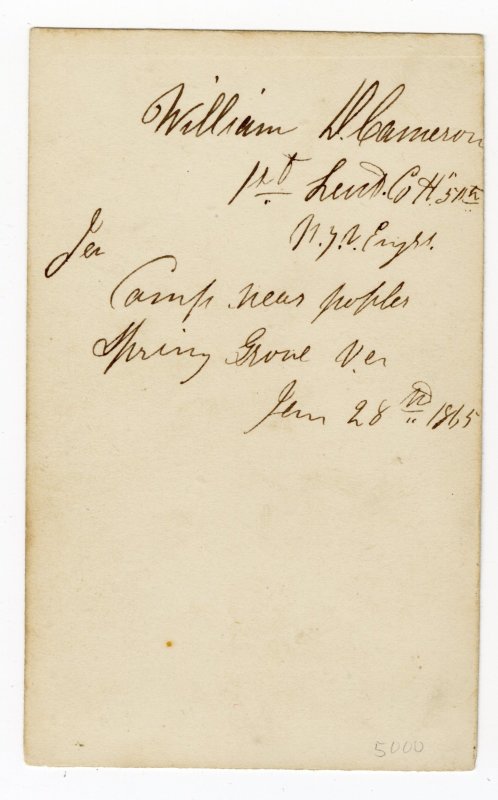 William D. Cameron
1st Leut. Co H" 50th
N.Y.V. Engrs.
Camp near popler
Spring Grove Va
Jan 28th 1865
5000